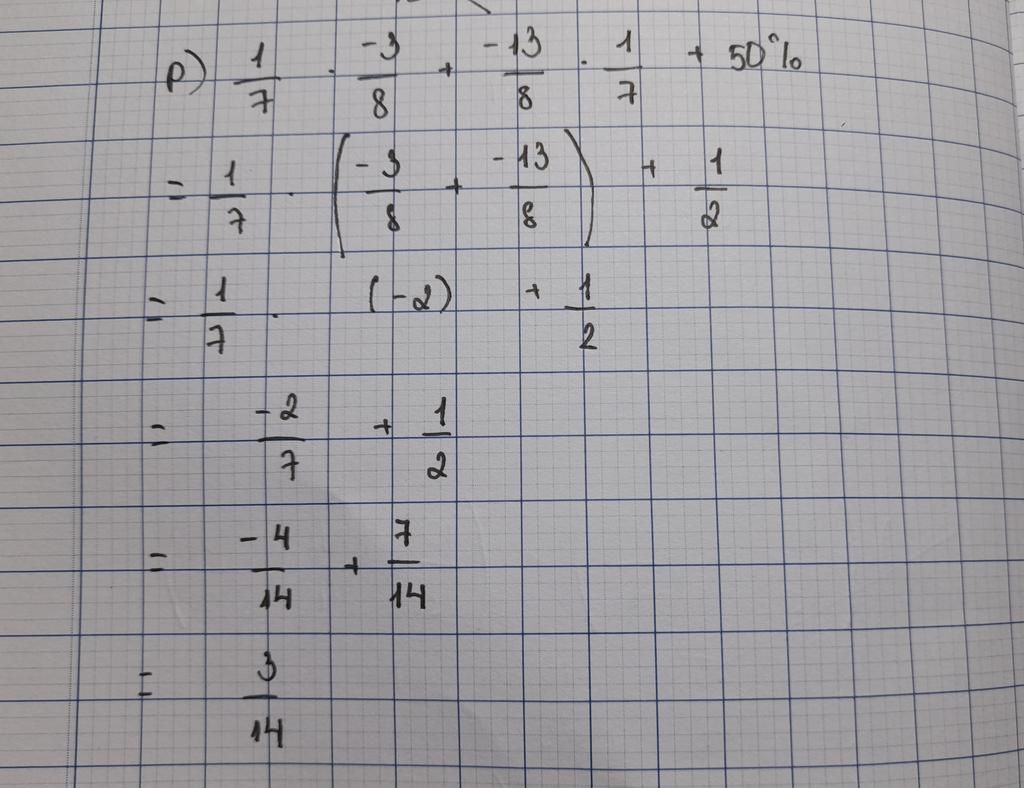 p) 1/7 . -3/8 + -13/8 . 1/7 + 50%
= 1/7 . (-3/8 + -13/8) + 1/2
= 1/7 . (-2) + 1/2
= -2/7 + 1/2
= -4/14 + 7/14
= 3/14